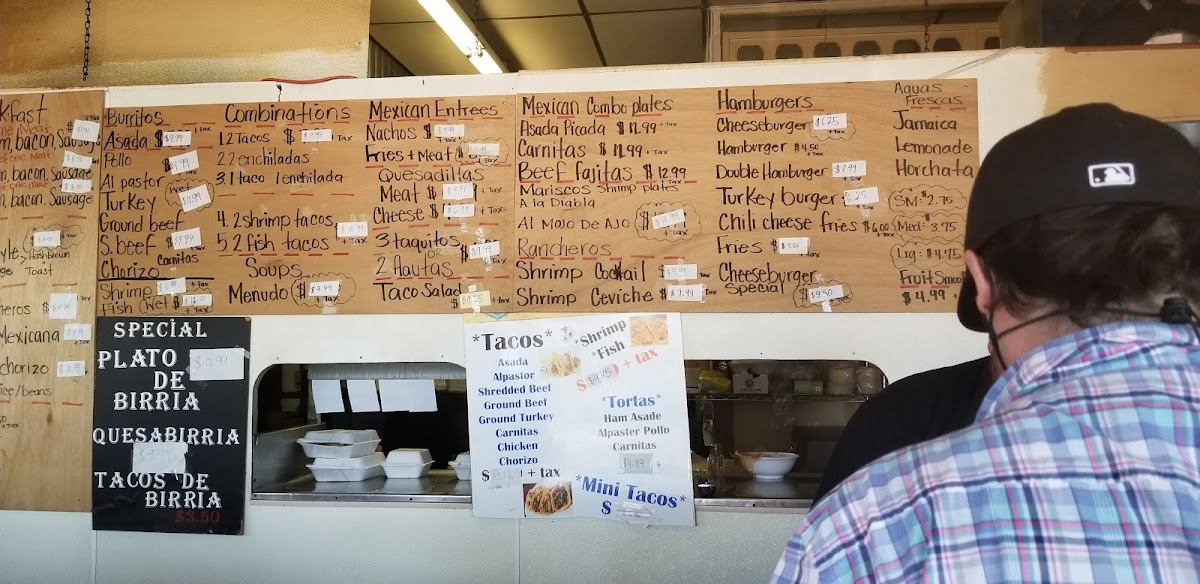 kfast
m, bacon, Sausage
m, bacon, Sausage
m, bacon, Sausage
Hashbrown
Toast
Mexicana
chorizo
Burritos
Asada $9.99
Pollo
Al pastor
Turkey
Ground beef
S. beef
Carnitas
Chorizo
Shrimp
Fish (Wet
Combinations
1. 2 Tacos $ + Tax
2. 2 enchiladas
3. 1 taco 1 enchilada
4. 2 shrimp tacos
5. 2 fish tacos + Tax
Soups
Menudo $ 9.49 + Tax
Mexican Entrees
Nachos $ + Tax
Fries + Meat $ + Tax
Quesadillas
Meat $ + Tax
Cheese $ + Tax
3 taquitos
OR
2 flautas
Taco Salad + Tax
Mexican Combo plates
Asada Picada $11.99 + Tax
Carnitas $11.99 + Tax
Beef Fajitas $12.99 + Tax
Mariscos Shrimp Plates
A la Diabla
Al Mojo De Ajo $ + Tax
Rancheros
Shrimp Cocktail $ Tax
Shrimp Ceviche $7.99 + Tax
Hamburgers
Cheeseburger 6.25 + Tax
Hamburger $4.50 + Tax
Double Hamburger $7.99 + Tax
Turkey burger 6.25 + Tax
Chili cheese fries $6.00 + Tax
Fries + Tax
Cheeseburger
Special $9.50 + Tax
Aguas
Frescas
Jamaica
Lemonade
Horchata
SM: $2.75
Med: $3.75
Lrg: $4.75
Fruit Smoo
$4.99 +
SPECIAL
PLATO
DE
BIRRIA
$12.99
QUESABIRRIA
TACOS DE
BIRRIA
$3.50
*Tacos*
Asada
Alpastor
Shredded Beef
Ground Beef
Ground Turkey
Carnitas
Chicken
Chorizo
$ + tax
*Shrimp
*Fish
$4.75 + tax
*Tortas*
Ham Asade
Alpaster Pollo
Carnitas
$9.99 +
*Mini Tacos*
$